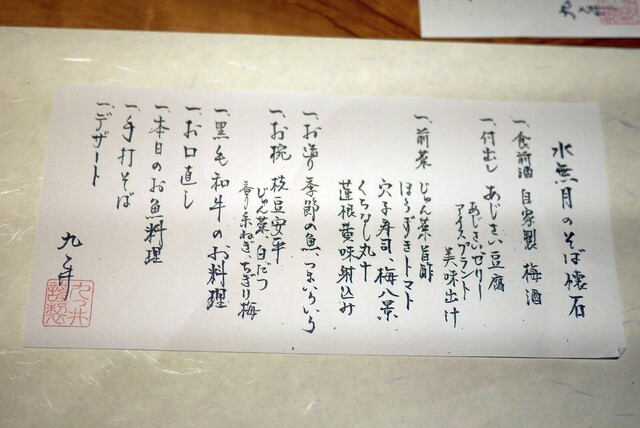 水無月のそば懐石
一、食前酒 自家製 梅酒
一、付出し あじさい豆腐
あじさいゼリー
アイスプラント
美味出汁
一、前菜 じゅん菜 旨酢
ほうずきトマト
穴子寿司、梅八景
くちなし丸十
蓮根黄味射込み
一、お造り 季節の魚、つまいろいろ
一、お椀 枝豆安平
じゅん菜 白だつ
香り糸ねぎ、ちぎり梅
一、黒毛和牛のお料理
一、お口直し
一、本日のお魚料理
一、手打そば
一、デザート
九つ井